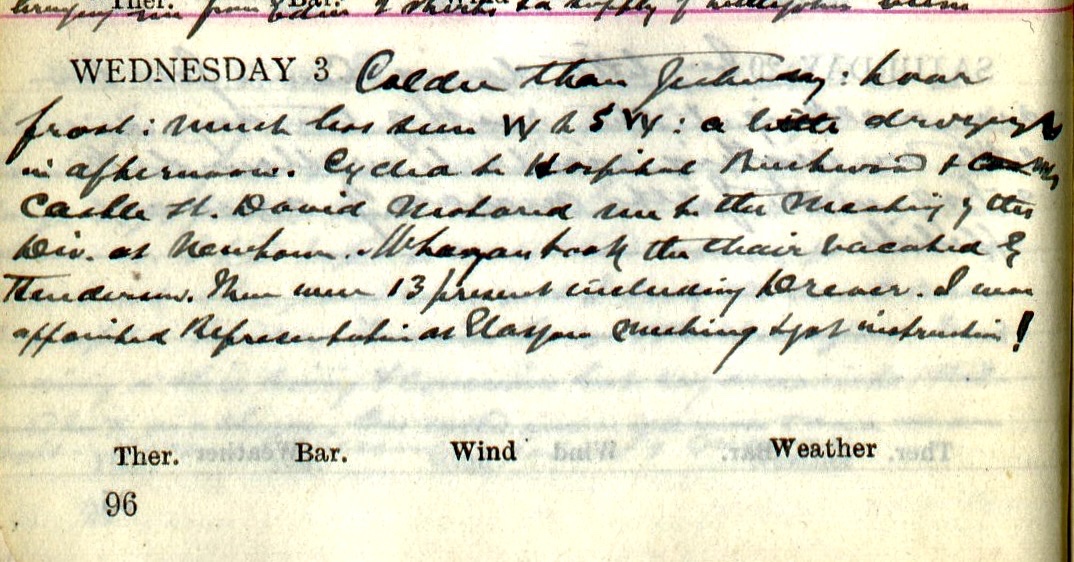 WEDNESDAY 3 Colder than yesterday: hoar
frost: much less sun W to SW: a little drizzling
in afternoon. Cycled to Hospital Birchwood &
Castle St. David motored me to the Meeting of the
Div. at Newhouse. took the chair vacated by
Henderson. There were 13 present including Drever. I was
appointed Representative at Glasgow meeting & got instruction!
Ther. Bar. Wind Weather
96